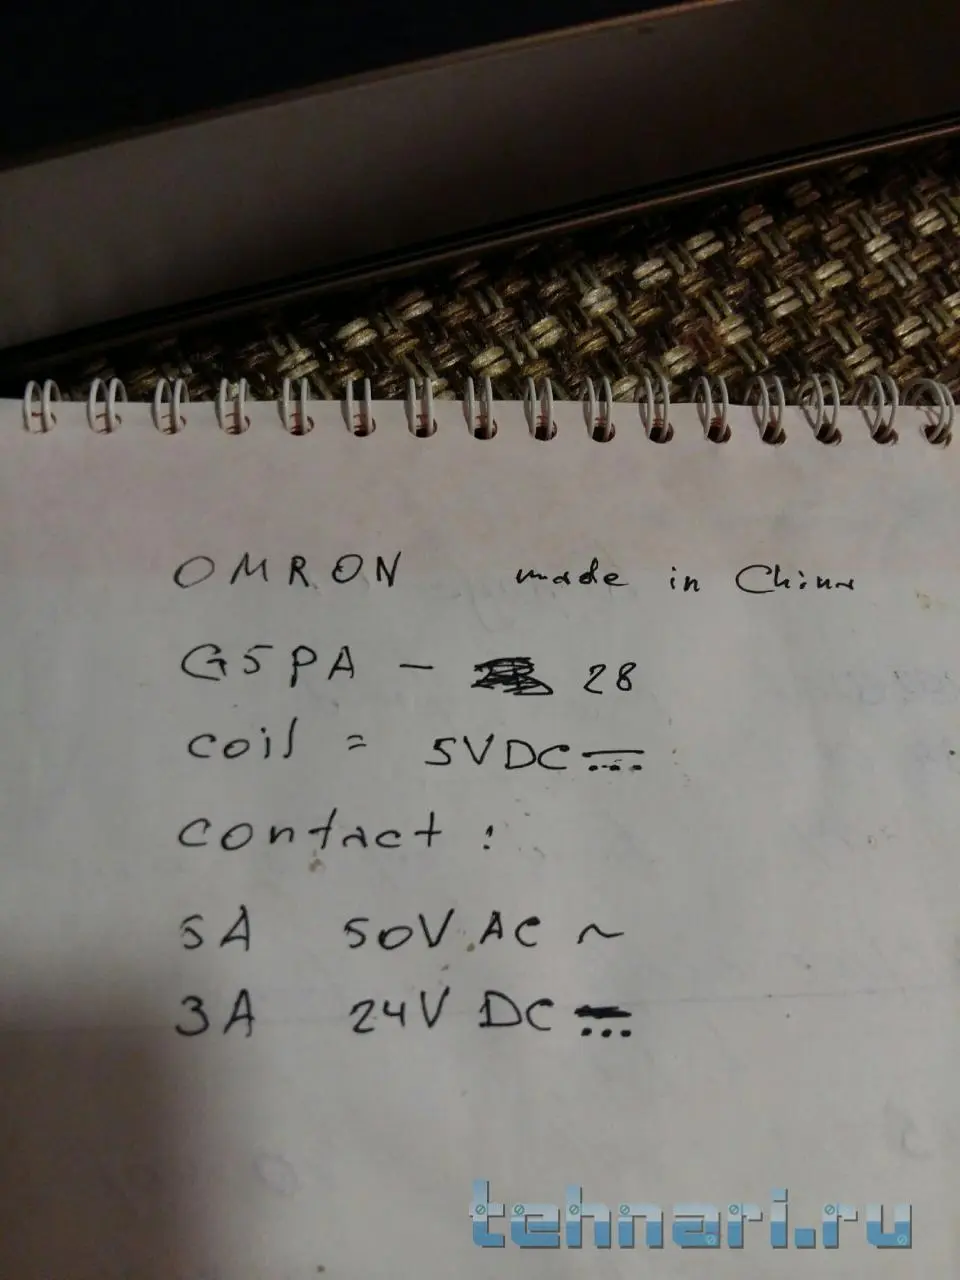 OMRON made in China
G5PA - 28
coil = 5VDC ⎓
contact:
5A 50V AC ~
3A 24V DC ⎓
tehnari.ru